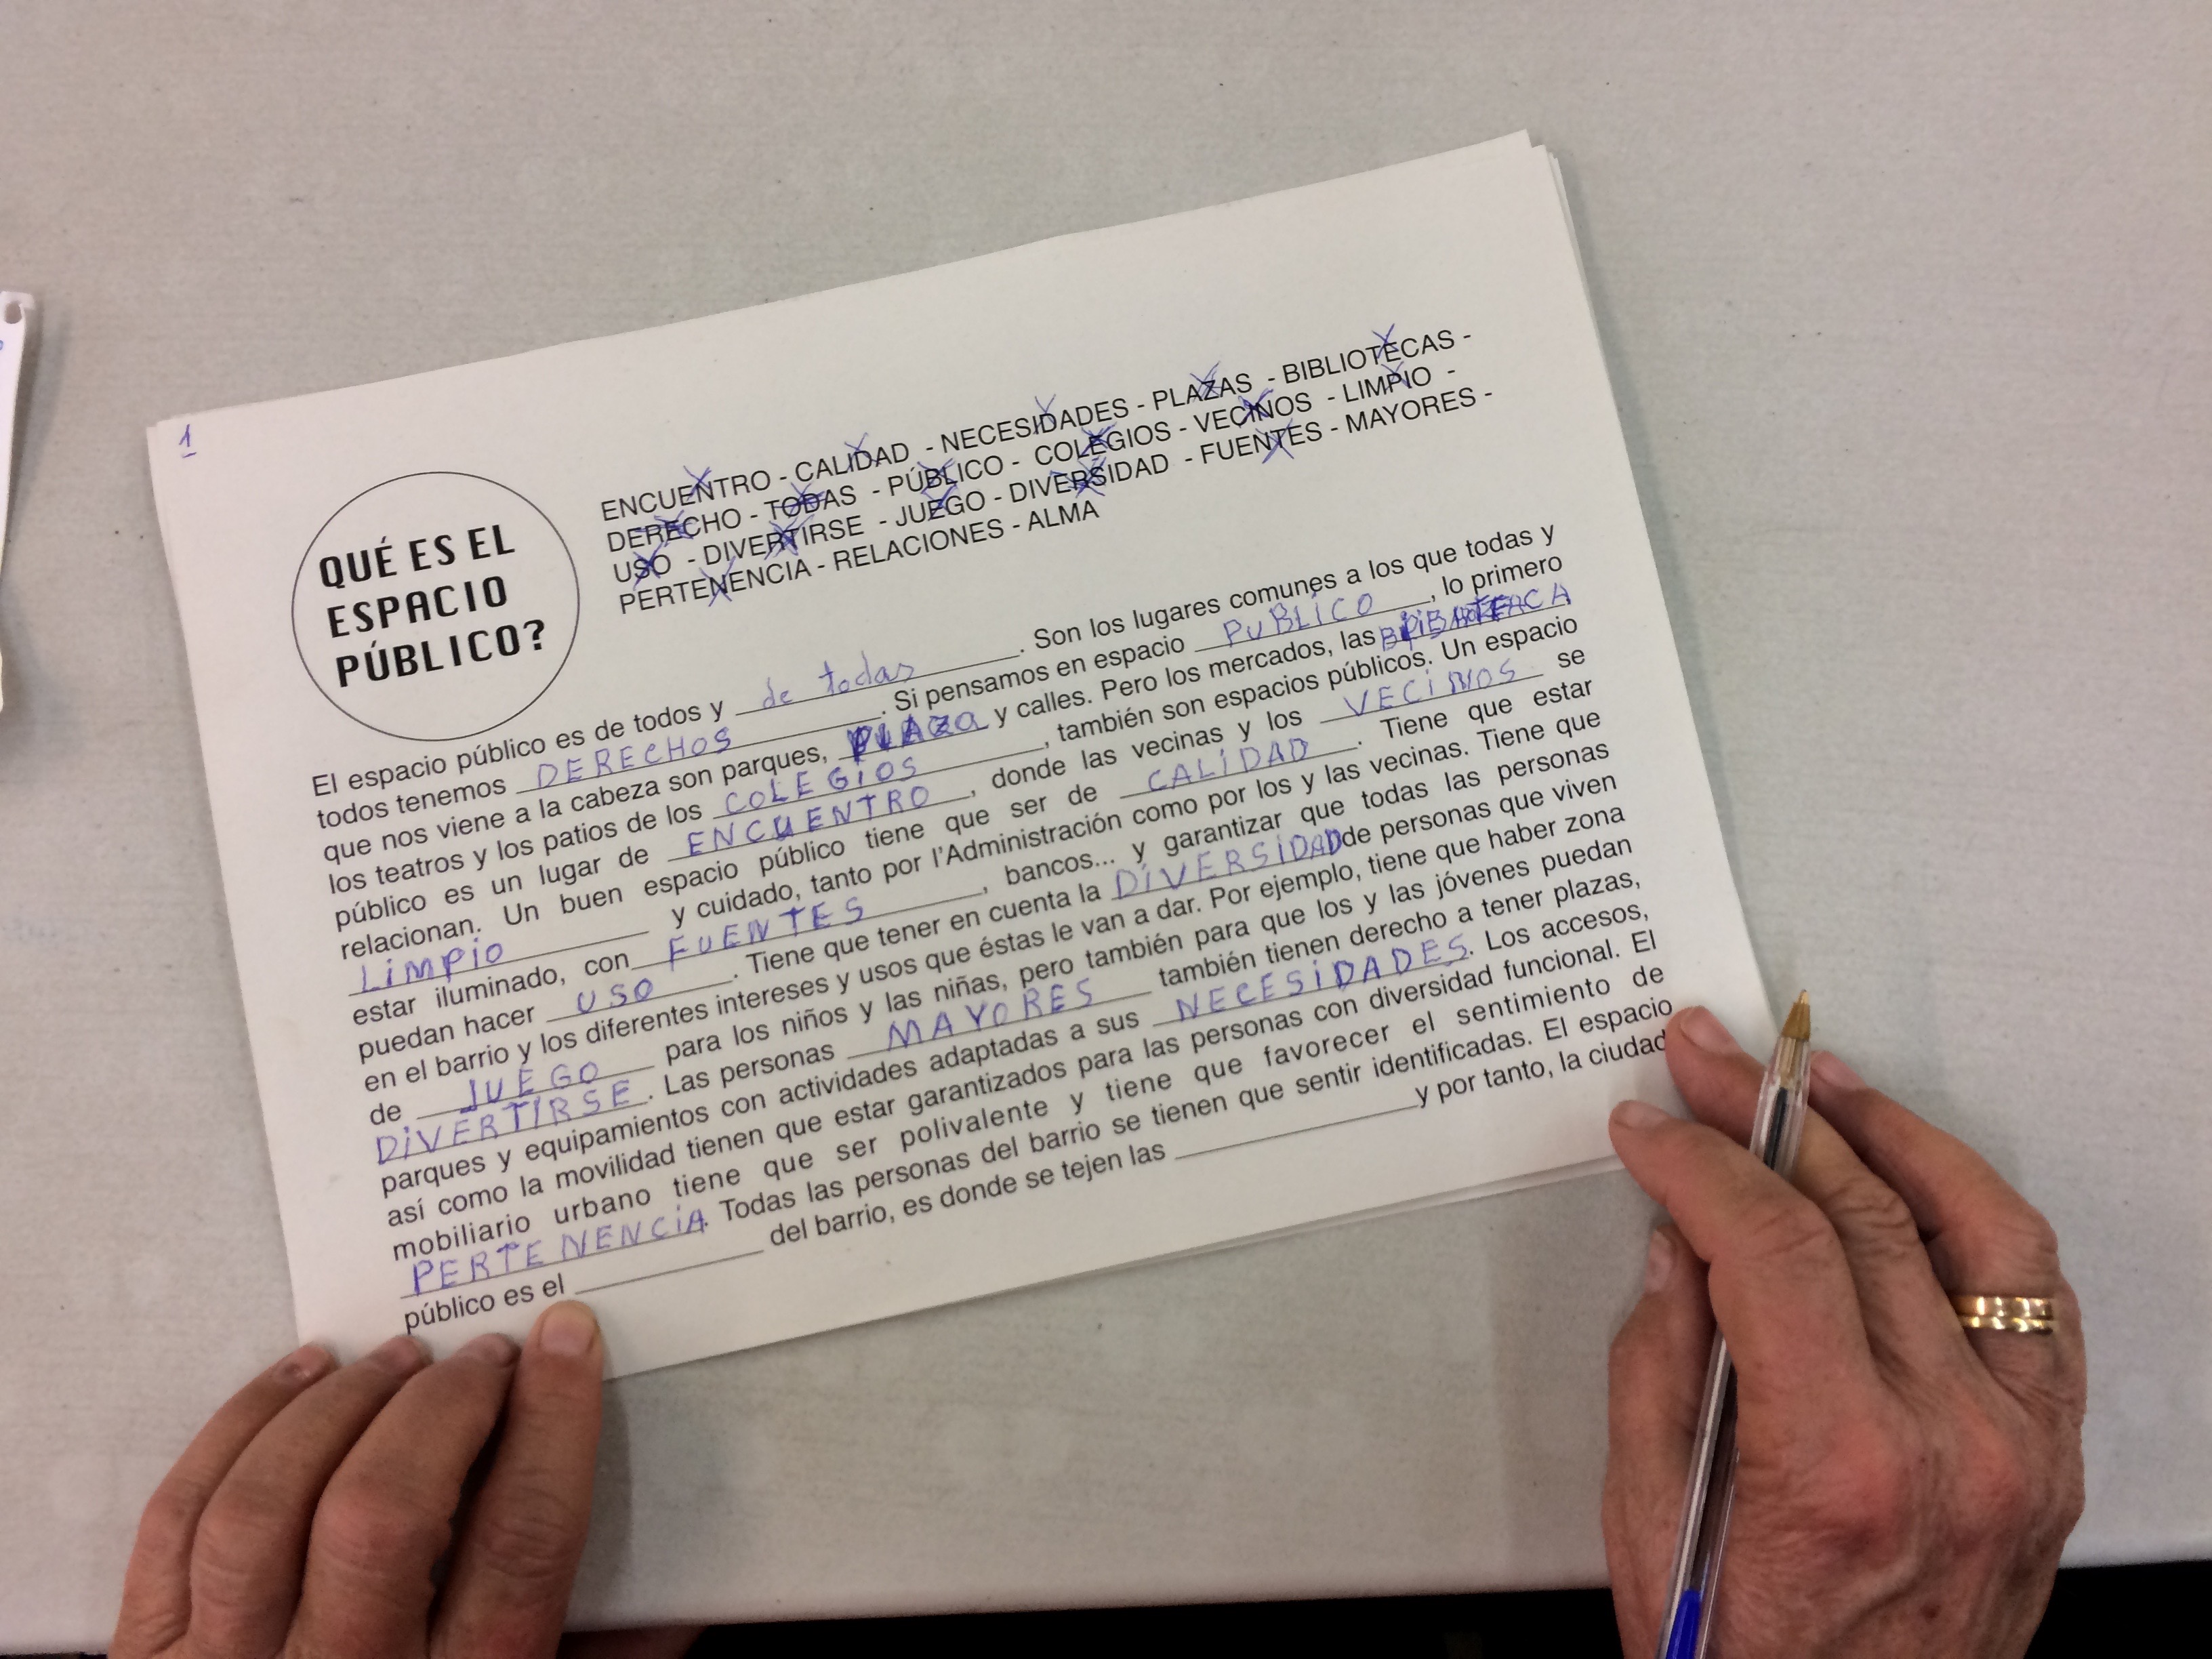 1
QUÉ ES EL
ESPACIO
PÚBLICO?
ENCUENTRO - CALIDAD - NECESIDADES - PLAZAS - BIBLIOTECAS -
DERECHO - TODAS - PÚBLICO - COLEGIOS - VECINOS - LIMPIO -
USO - DIVERTIRSE - JUEGO - DIVERSIDAD - FUENTES - MAYORES -
PERTENENCIA - RELACIONES - ALMA
El espacio público es de todos y de todas. Son los lugares comunes a los que todas y
todos tenemos DERECHOS. Si pensamos en espacio PUBLICO, lo primero
que nos viene a la cabeza son parques, PLAZA y calles. Pero los mercados, las
los teatros y los patios de los COLEGIOS, también son espacios públicos. Un espacio
público es un lugar de ENCUENTRO, donde las vecinas y los VECINOS se
relacionan. Un buen espacio público tiene que ser de CALIDAD. Tiene que estar
LIMPIO y cuidado, tanto por l'Administración como por los y las vecinas. Tiene que
estar iluminado, con FUENTES, bancos... y garantizar que todas las personas
puedan hacer USO. Tiene que tener en cuenta la DIVERSIDAD de personas que viven
en el barrio y los diferentes intereses y usos que éstas le van a dar. Por ejemplo, tiene que haber zona
de JUEGO para los niños y las niñas, pero también para que los y las jóvenes puedan
DIVERTIRSE. Las personas MAYORES también tienen derecho a tener plazas,
parques y equipamientos con actividades adaptadas a sus NECESIDADES. Los accesos,
así como la movilidad tienen que estar garantizados para las personas con diversidad funcional. El
mobiliario urbano tiene que ser polivalente y tiene que favorecer el sentimiento de
PERTENENCIA. Todas las personas del barrio se tienen que sentir identificadas. El espacio
público es el ______ del barrio, es donde se tejen las ______ y por tanto, la ciudad